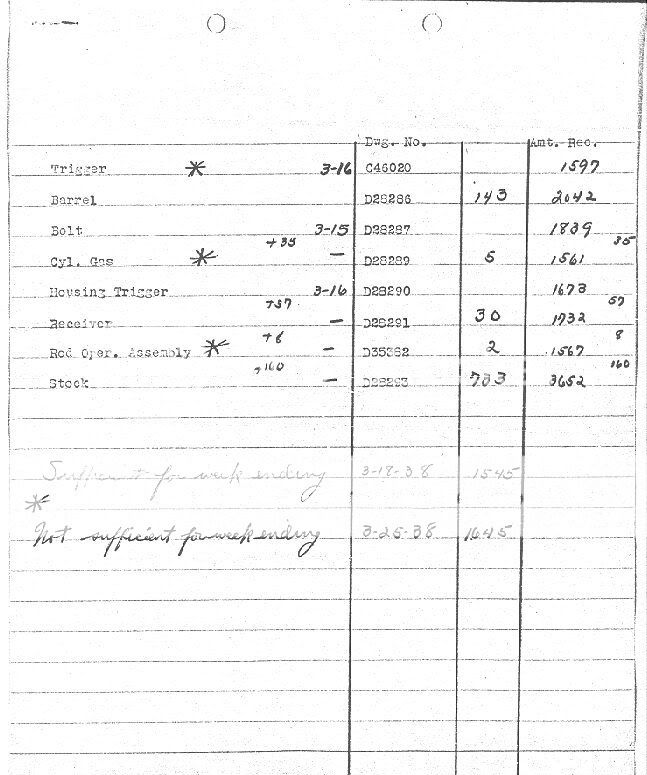 Dwg. No. Amt. Rec.
Trigger * 3-16 C46020 1597
Barrel D28286 143 2042
Bolt 3-15 D28287 1839
+35 35
Cyl. Gas * — D28289 5 1561
Housing Trigger 3-16 D28290 1673
+57 57
Receiver — D28291 30 1932
+8 8
Rod Oper. Assembly * — D35382 2 1567
+160 160
Stock — 733 3652
Sufficient for week ending 3-18-38 1545
*
Not sufficient for week ending 3-25-38 1645